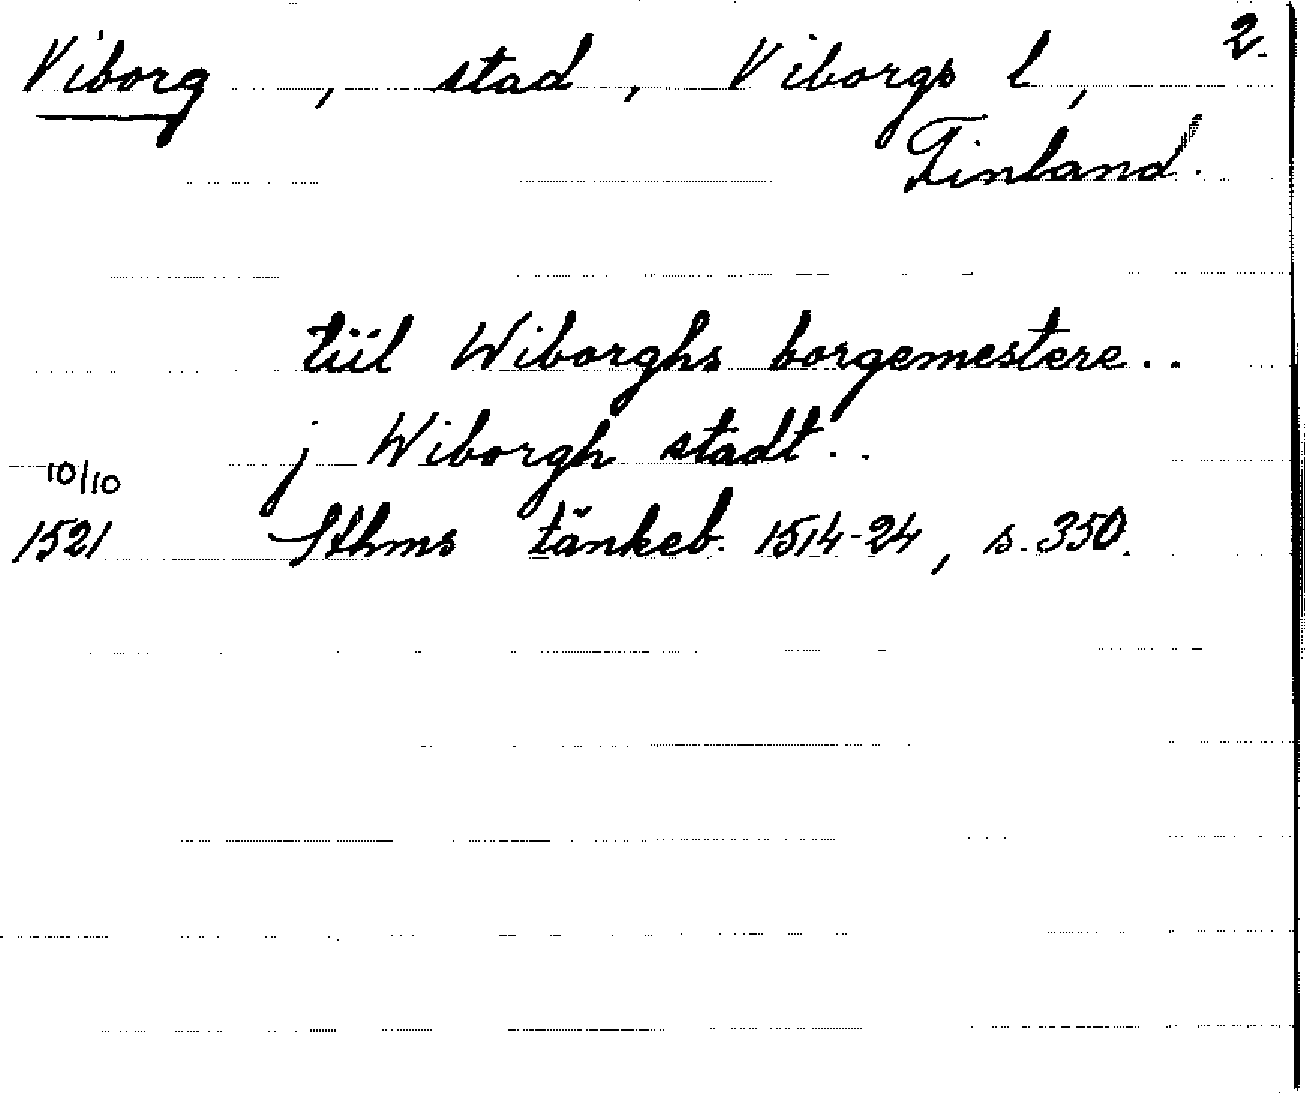 2.
Viborg, stad, Viborgs l,
Finland.
tiil Wiborghs borgemestere..
j Wiborgh stadt..
10/10
1521 Sthms tänkeb. 1514-24, s. 350.